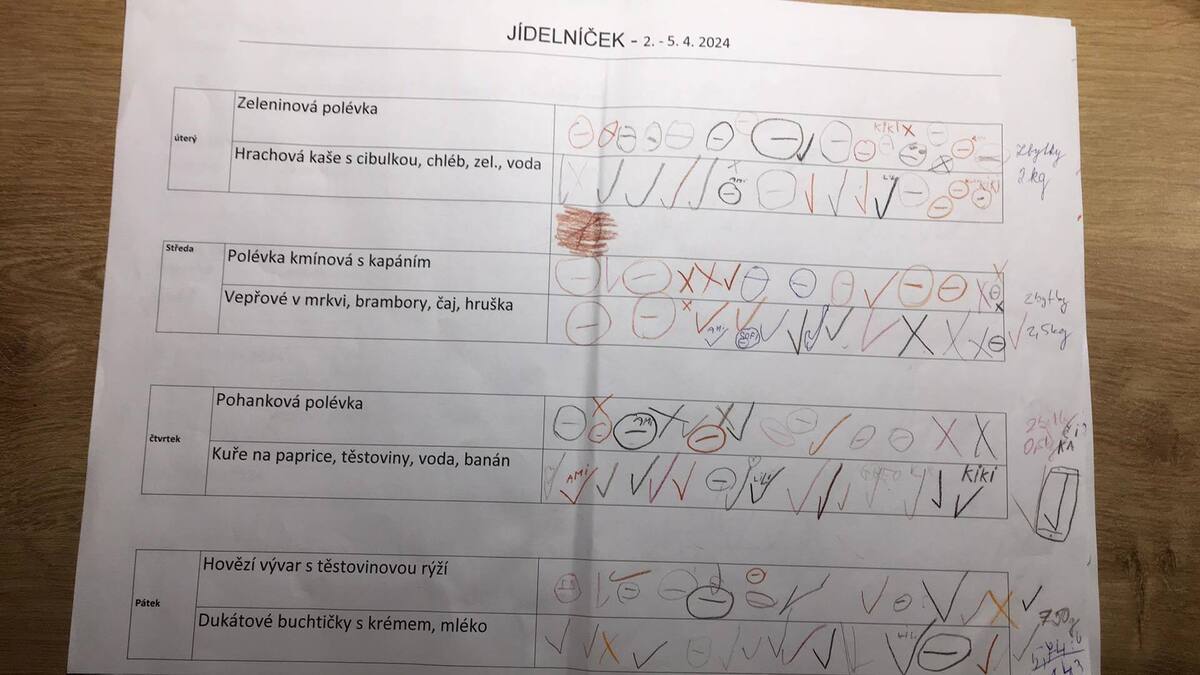 JÍDELNÍČEK - 2. - 5. 4. 2024
úterý
Zeleninová polévka
KiKi
Hrachová kaše s cibulkou, chléb, zel., voda
AMi
zbytky
2 kg
Středa
Polévka kmínová s kapáním
Vepřové v mrkvi, brambory, čaj, hruška
AMi
SOFI
zbytky
2,5kg
čtvrtek
Pohanková polévka
AMI
Kuře na paprice, těstoviny, voda, banán
AMi
LiLi
KiKi
Pátek
Hovězí vývar s těstovinovou rýží
Dukátové buchtičky s krémem, mléko
750g